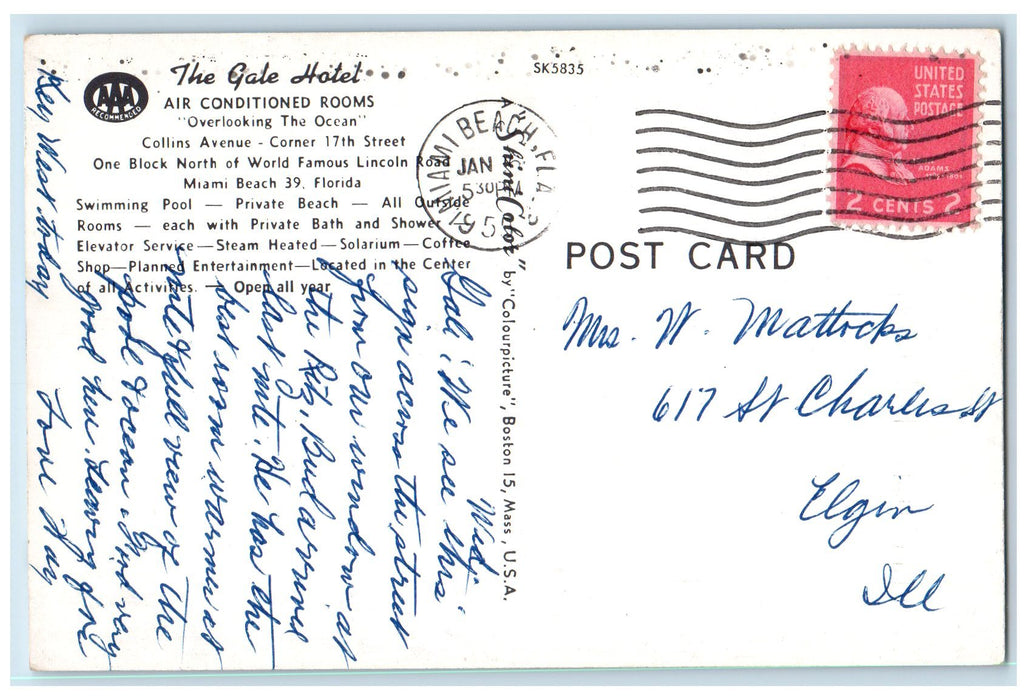 The Gale Hotel
AAA
RECOMMENDED
AIR CONDITIONED ROOMS
"Overlooking The Ocean"
Collins Avenue - Corner 17th Street
One Block North of World Famous Lincoln Road
Miami Beach 39, Florida
Swimming Pool — Private Beach — All Outside
Rooms — each with Private Bath and Shower
Elevator Service — Steam Heated — Solarium — Coffee
Shop — Planned Entertainment — Located in the Center
of all Activities. — Open all year
Wed.
Gali: We see this
sign across the street
from our window at
the Ritz. Bud arrived
last nite. He has the
best room warmer at
nite & full view of the
pool & ocean. Food very
good here. Leaving for
Key West today
Love Kay
SK5835
"ShiniColor" by "Colourpicture", Boston 15, Mass., U.S.A.
MIAMI BEACH, FLA.
JAN
530PM
UNITED
STATES
POSTAGE
ADAMS
2 CENTS 2
POST CARD
Mrs. W. Mattocks
617 St Charles St
Elgin
Ill